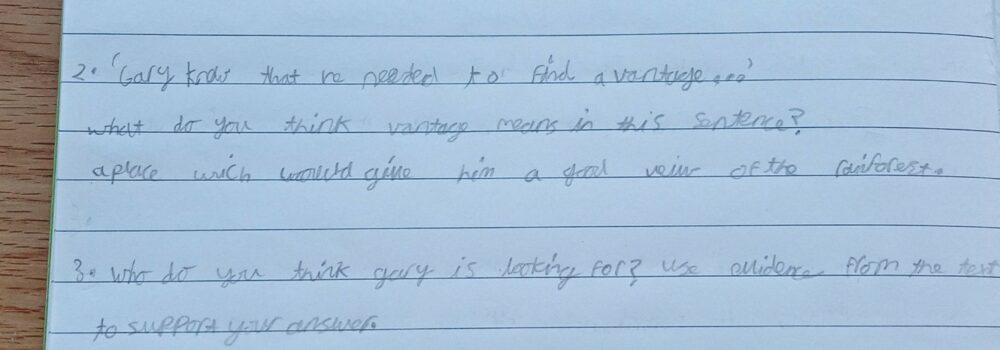 2. 'Gary know that he needed to find a vantage...'
what do you think vantage means in this sentence?
a place wich would give him a good veiw of the rainforest.
3. who do you think gary is looking for? use evidence from the text
to support your answer.